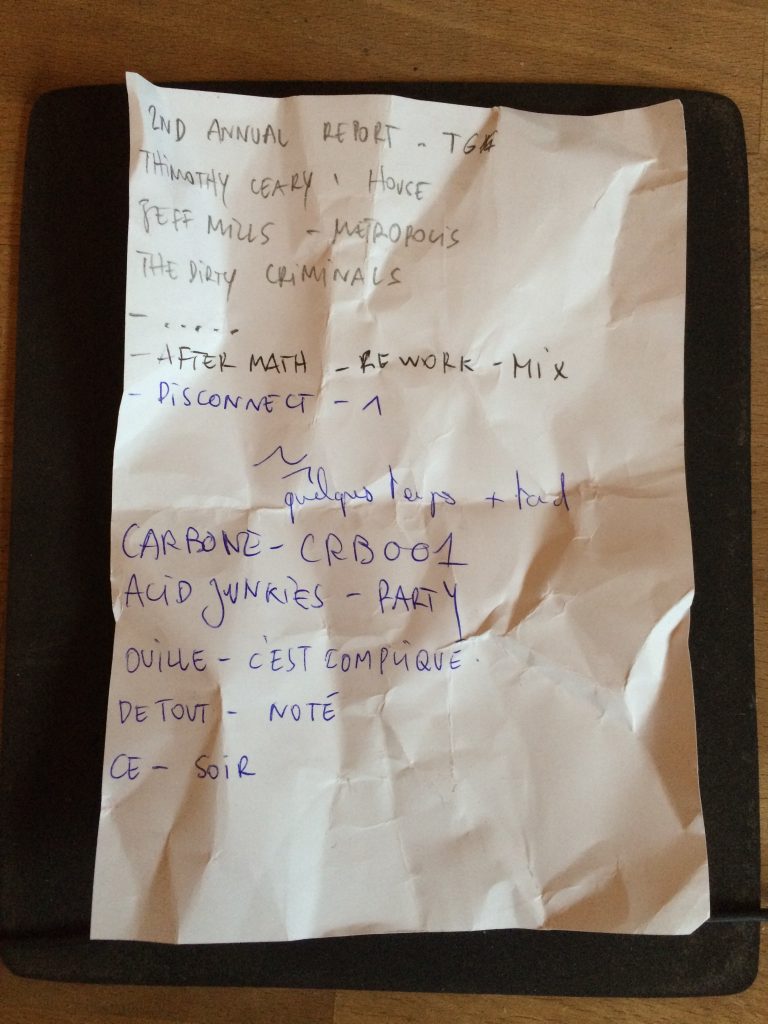 2ND ANNUAL REPORT - TG
THIMOTHY LEARY ' HOUSE
JEFF MILLS - METROPOLIS
THE DIRTY CRIMINALS
- .....
- AFTER MATH - REWORK - MIX
- DISCONNECT - 1
quelques temps + tard
CARBONE - CRB001
ACID JUNKIES - PARTY
OUILLE - C'EST COMPLIQUÉ.
DE TOUT - NOTÉ
CE - SOIR